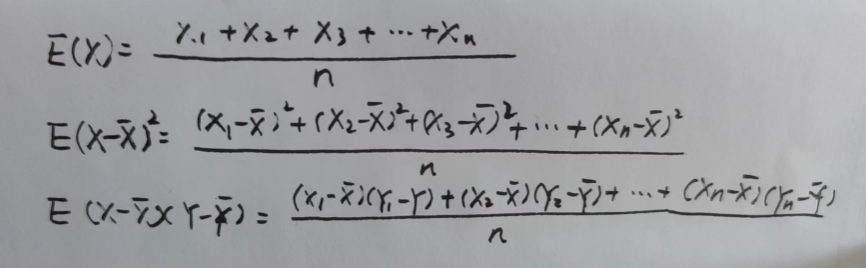 E(X) = (X₁ + X₂ + X₃ + ⋯ + Xₙ) / n
E(X-X̄)² = ((X₁-X̄)² + (X₂-X̄)² + (X₃-X̄)² + ⋯ + (Xₙ-X̄)²) / n
E(X-X̄)(Y-Ȳ) = ((X₁-X̄)(Y₁-Y) + (X₂-X̄)(Y₂-Ȳ) + ⋯ + (Xₙ-X̄)(Yₙ-Ȳ)) / n